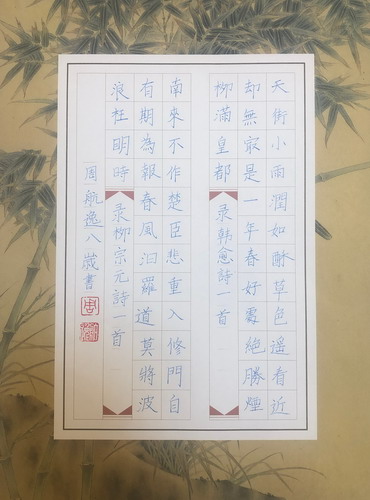 天街小雨潤如酥草色遙看近
却無最是一年春好處絕勝煙
柳滿皇都录韓愈詩一首
南來不作楚臣悲重入修門自
有期為報春風汨羅道莫將波
浪枉明時录柳宗元詩一首
周航逸八歲書
周